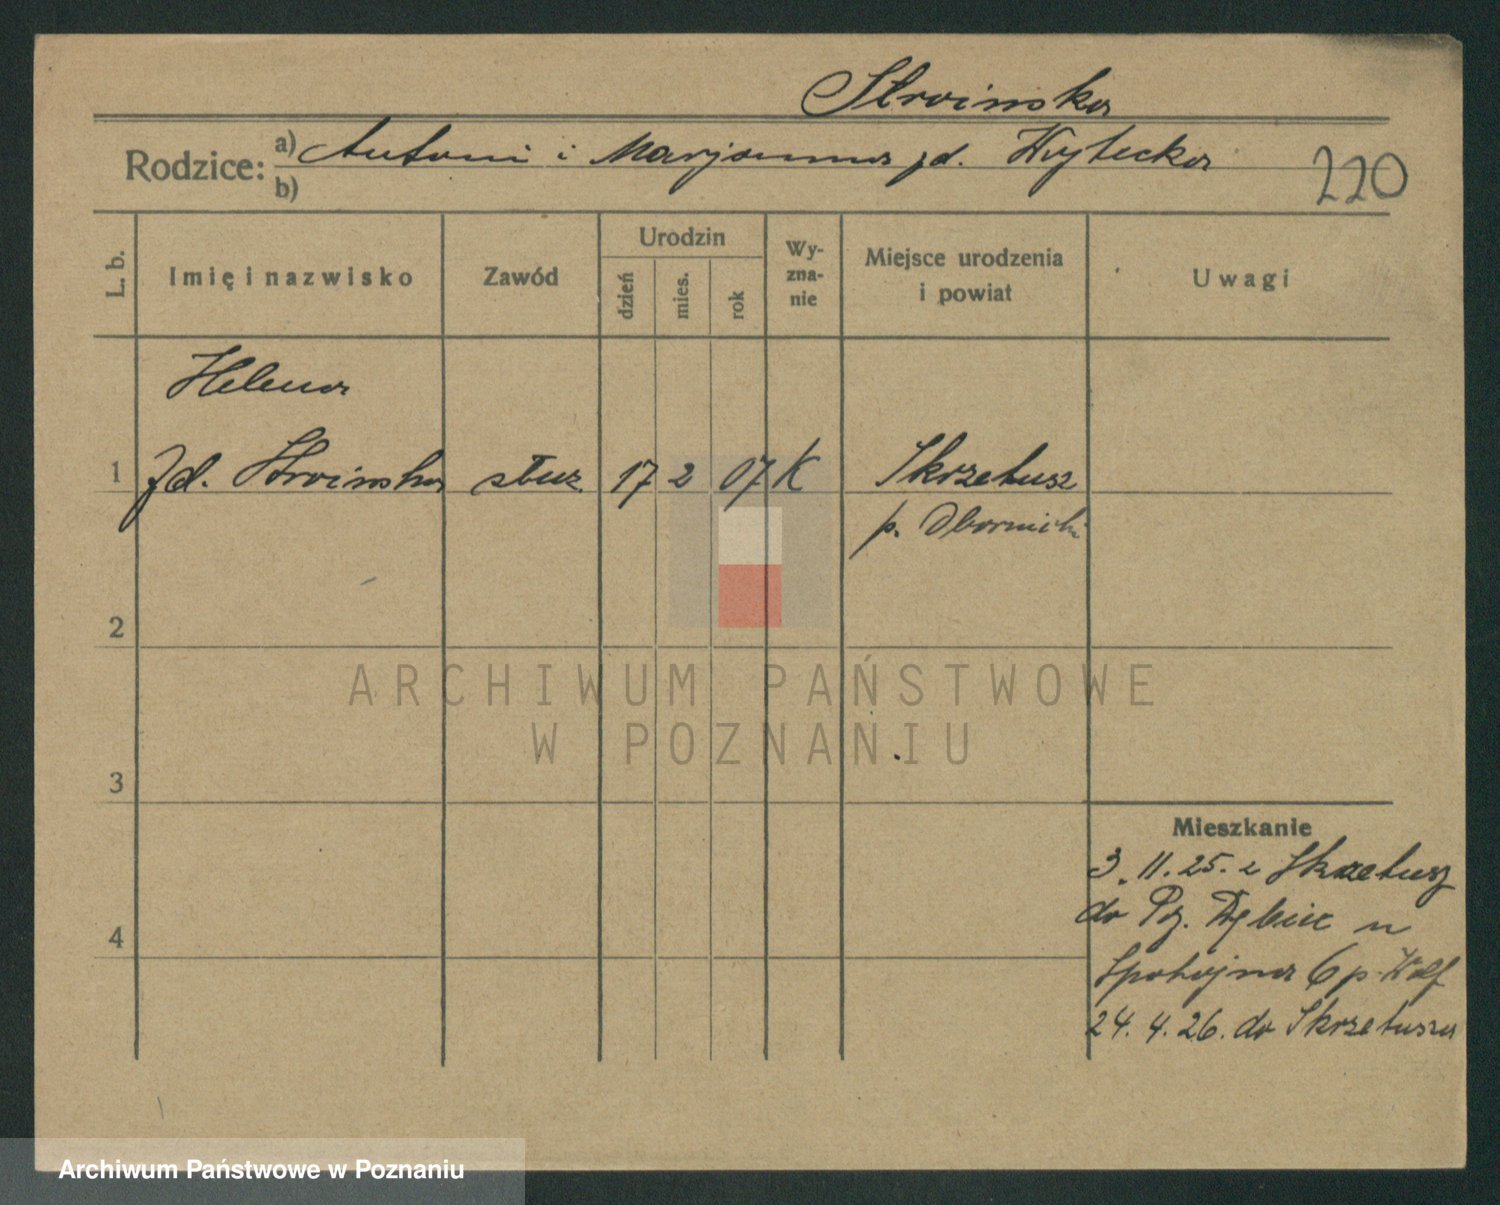 Stroinska
Rodzice: a) Antoni i Marjanna zd. Wytecka
b)
220
L. b.
Imię i nazwisko
Zawód
Urodzin
dzień
mies.
rok
Wy-
zna-
nie
Miejsce urodzenia
i powiat
Uwagi
Helena
1 zd. Stroinska służ. 17 2 07 K Skrzetusz
p. Obornicki
2
3
4
Mieszkanie
3. 11. 25. z Skrzetusz
do Pz. Dębiec u
Spokojna 6 p. Wolf
24. 4. 26. do Skrzetusza
ARCHIWUM PAŃSTWOWE
W POZNANIU
Archiwum Państwowe w Poznaniu